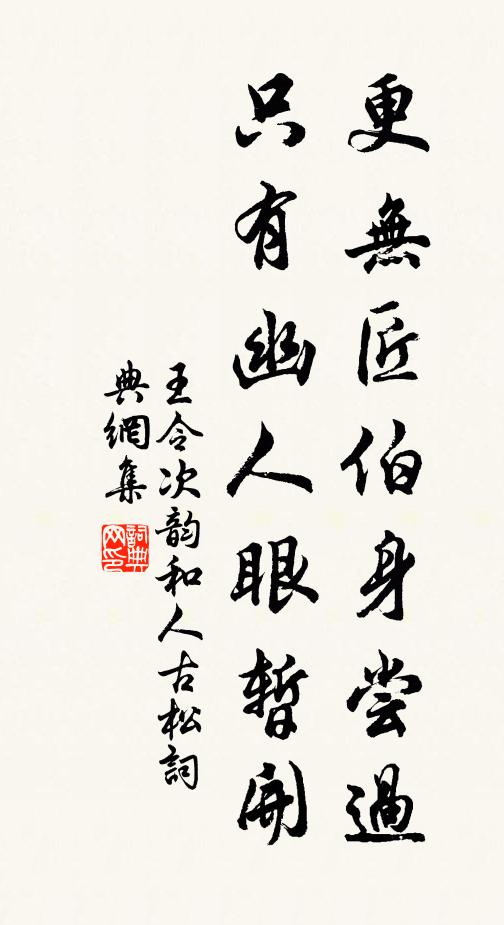 更無匠伯身嘗過
只有幽人眼暫開
王令次韵和人古松詞
典網集
詞典
网印